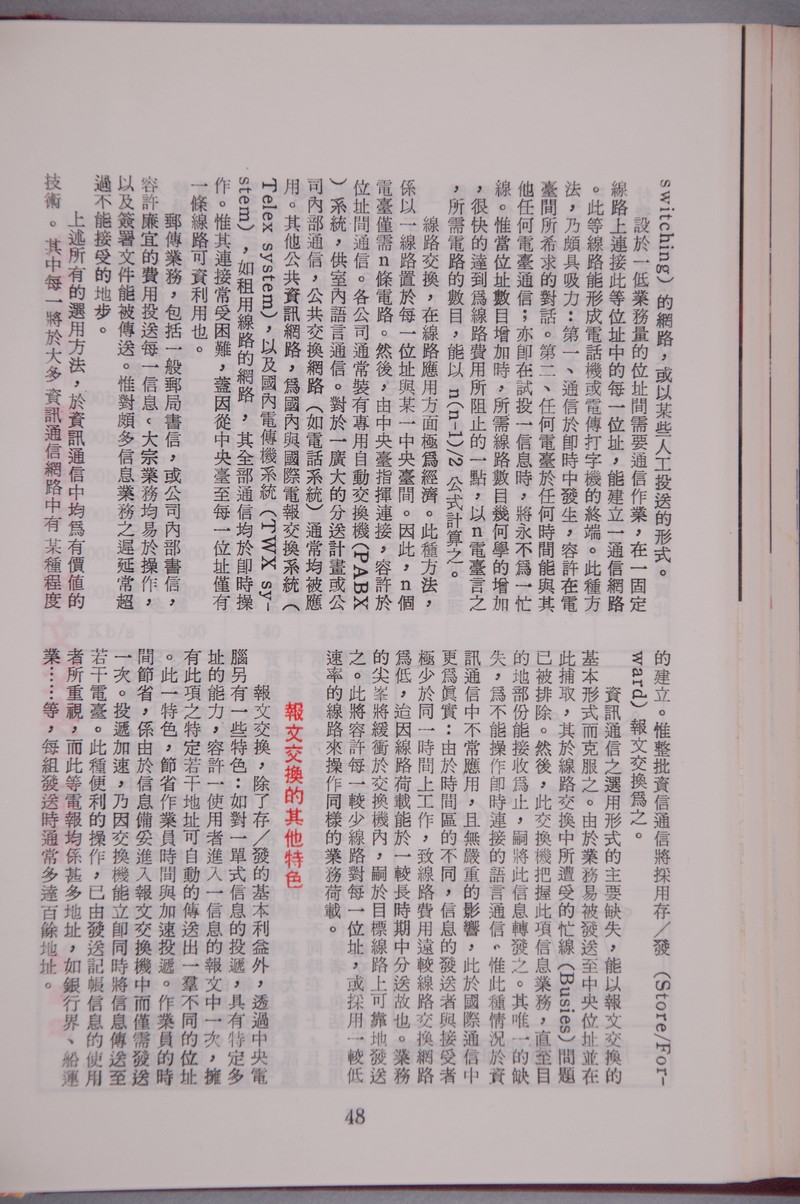 switching）的網路，或以某些人工投送的形式。
設於一低業務量的位址間需要通信作業，在一固定
線路上連接此等位址中的每一位址，能建立一通信網路
。此等線路能形成電話機或電傳打字機的終端。此種方
法，乃頗具吸力：第一、通信於卽時中發生，容許在電
臺間所希求的對話。第二、任何電臺於任何時間能與其
他任何電臺通信；亦卽在試投一信息時，將永不爲一忙
線。惟當位址數目增加時，所需線路數目幾何學的增加
，很快的達到爲線路費用所阻止的一點，以n電臺言之
，所需電路的數目，能以 n(n-1)/2 公式計算之。
線路交換，在線路應用方面極爲經濟。此種方法，
係以一線路置於每一位址與某一中央臺間。因此，n個
電臺僅需n條電路。然後，由中央臺指揮連接，容許於
位址間通信。各公司通常裝有專用自動交換機（PABX
）系統，供室內語言通信。對於一廣大的分送計畫或公
司內部通信，公共交換網路（如電話系統）通常均被應
用。其他公共資訊網路，爲國內與國際電報交換系統（
Telex system），以及國內電傳機系統（TWX sy-
stem），如租用線路的網路，其全部通信均於卽時操
作。惟其連接常受困難，蓋因從中央臺至每一位址僅有
一條線路可資利用也。
郵傳業務，包括一般郵局書信，或公司內部書信，
容許廉宜的費用投送每一信息。大宗業務均易於操作，
以及簽署文件能被傳送。惟對頗多信息業務之遲延常超
過不能接受的地步。
上述所有的選用方法，於資訊通信中均爲有價値的
技術。其中每一將於大多資訊通信網路中有某種程度
的建立。惟整批資信通信將採用存／發（Store/For-
ward）報文交換爲之。
資訊通信之選用形式的主要缺失，能以報文交換的
基本形式而克服之。由於業務易被發送至中央位址並在
此捕取，其於線路交換中所遭受的忙線（Busies）問題
已被排除。然後，此交換機把握此項信息業務，直至目
的地部份能接收爲止，嗣將此信息轉發之。其唯一的缺
失，爲不能操作卽時連接的語言通信。惟此種情況於資
訊通信中不常應用，且無嚴重的影響，此於國際通信中
更爲眞實：由於時間區的不同，信息的發送者與接受者
極少於同一時間上工作，致線路費用遠較線路交換網路
爲低，迨因線路荷載能於一較長時期中分送故也。業務
的尖峯將緩衝於交換機內，嗣於目標線路上可靠地發送
之。此將容許每一較少線路對每一位址，或採用一較低
速率的線路來操作同樣的業務荷載。
報文交換的其他特色
報文交換，除了存／發的基本利益外，透過中央電
腦另有一些特色：如對一單式信息的投遞，具有特定多
址的能力，容許一使用者進入一信息的報文中一次，擁
有此項之特定若干地址可自動的傳送出一羣不同的位址
。此一特色，節省作業員時間與加速投遞。作業員的時
間節省，係由於信息備妥進入報文交換機中而僅需發送
一次。投遞加速，乃因交換機能立卽同時將信息傳送至
若干電臺。此種便利的操作，已由發送記帳信息的使用
者所重視，而此等電報均係甚多地址，如銀行界、船運
業……等，每組發送時通常多達百餘地址。
48